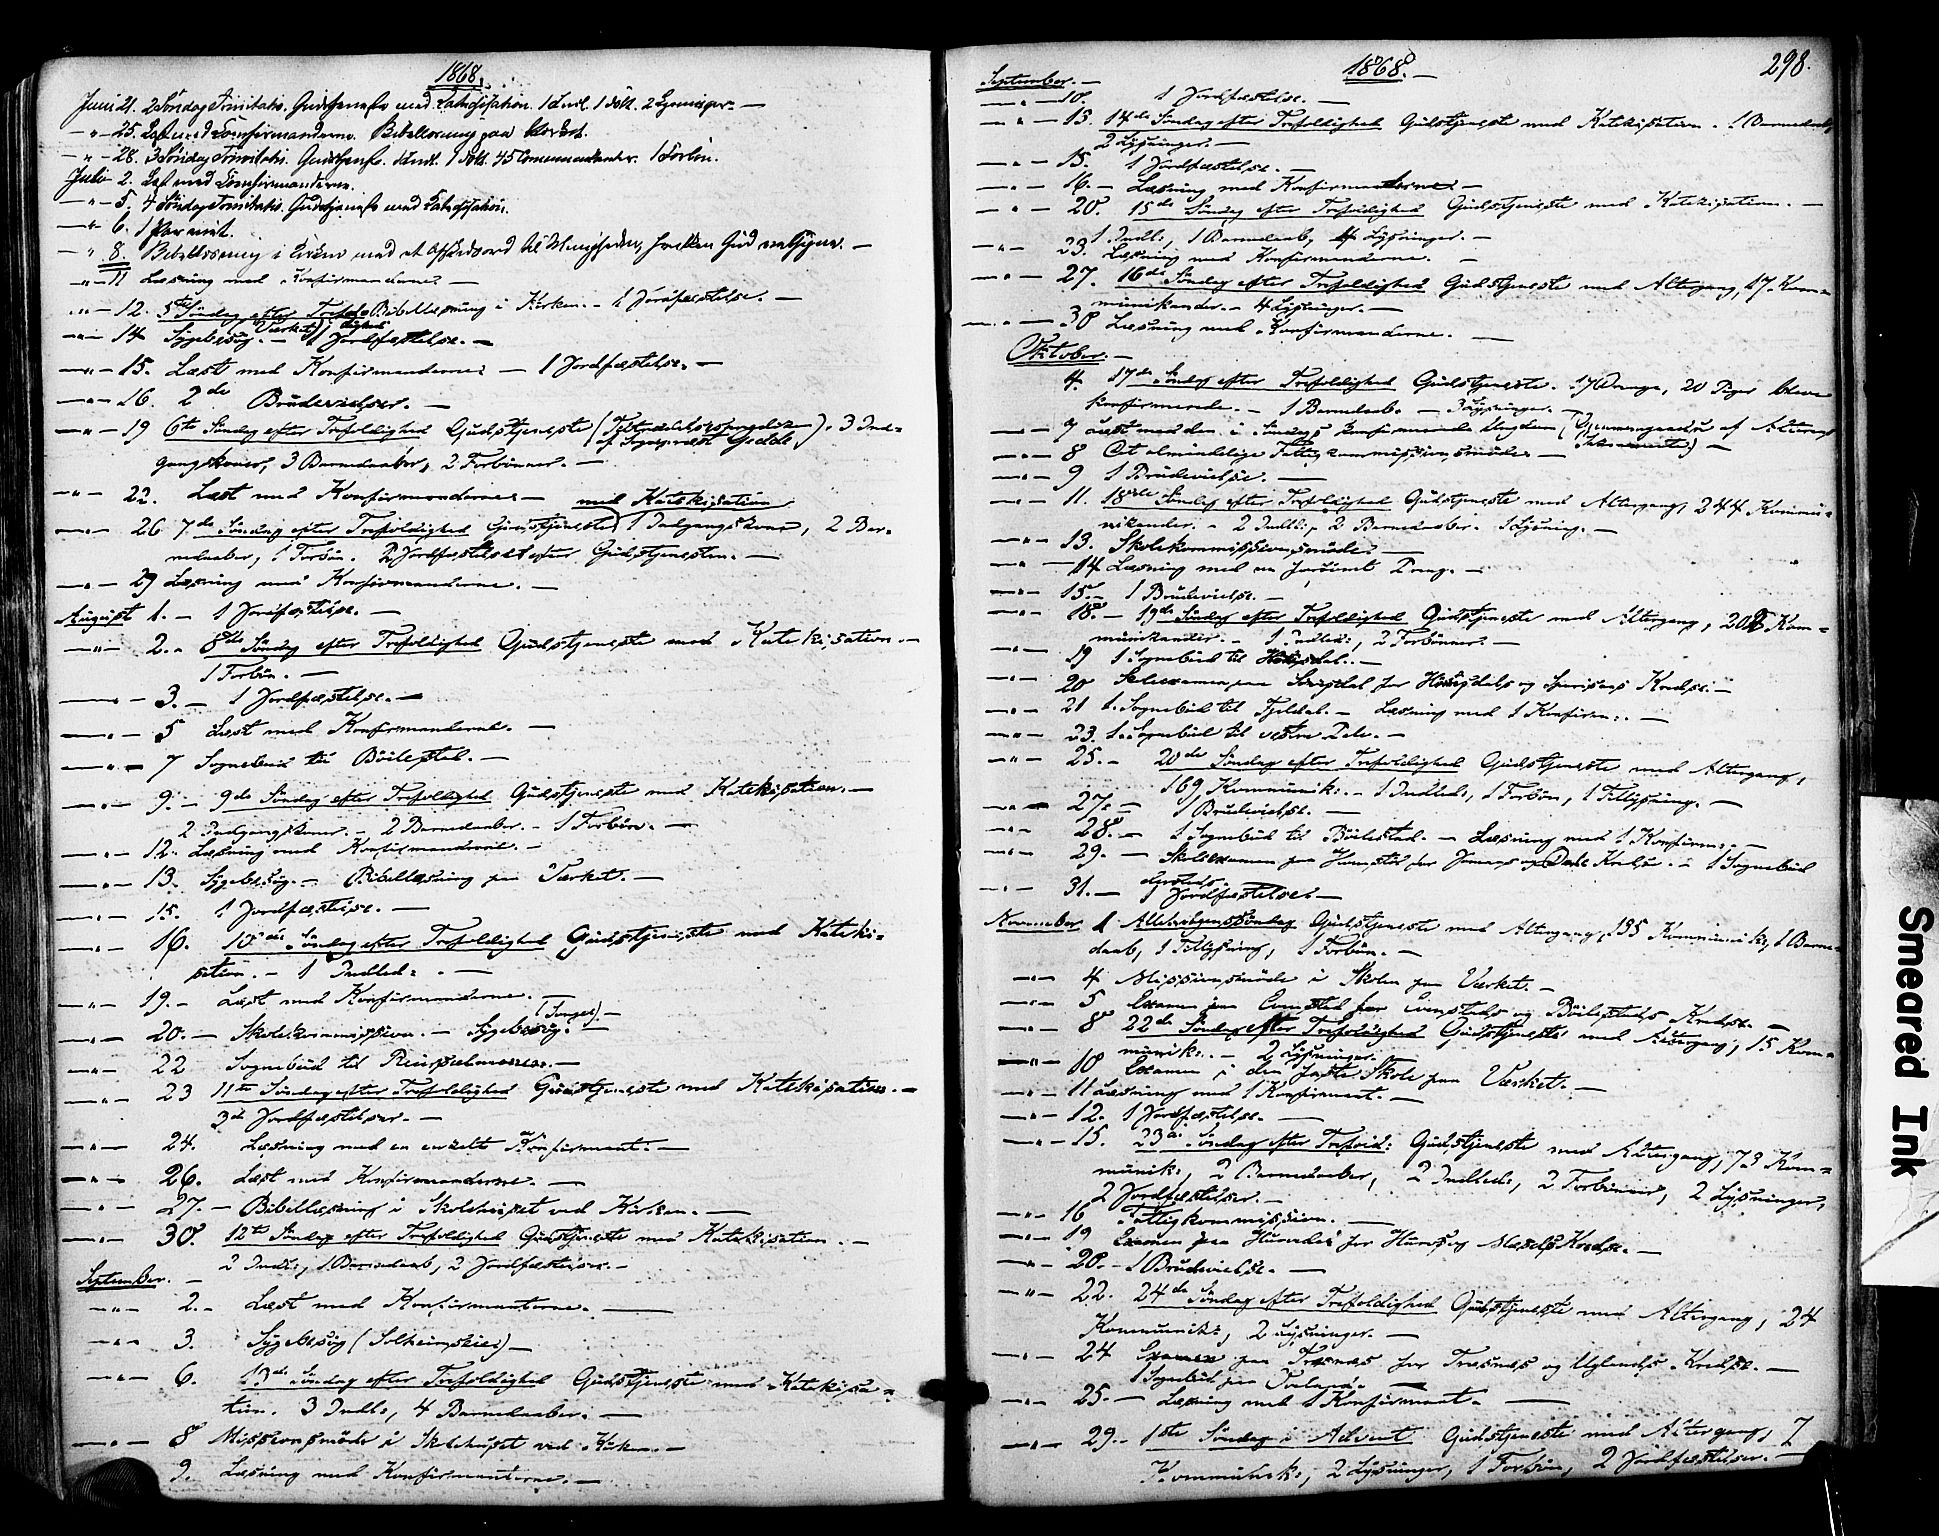 1868.
Juni 21. 2 Söndag Trinitatis. Gudstjeneste med Katechisation. 1 Indl. 1 Döbt. 2 Lysninger. —
— " — 25. Læst med Confirmanderne. Bibellæsning paa
— " — 28. 3 Söndag Trinitatis. Gudstjeneste. 1 Indl. 1 Döbt. 45 Communicanter. 1 Forbön.
Julii 2. Læst med Confirmanderne.
— " — 5. 4 Söndag Trinitatis. Gudstjeneste med Katechisation.
— " — 6. 1 Par viet.
— " 8. Bibellæsning i Kirken med et Afskedsord til Menigheden, hvilken Gud velsigne. —
— " — 11 Læsning med Konfirmanderne. —
— " — 12. 5te Söndag efter Trefold: Bibellæsning i Kirken. — 1 Jordfæstelse. —
— " — 14 Sygebesög. — (Værket) 1 Jordfæstelse. —
— " — 15. Læst med Konfirmanderne: — 1 Jordfæstelse. —
— " — 16. 2de Brudevielser. —
— " — 19 6te Söndag efter Trefoldighed Gudstjeneste (Tiltrædelsesprædiken af Sognepræst Gedde). 3 Ind-
gangskoner, 3 Barnedaaber, 2 Forbönner. —
— " — 22. Læst med Konfirmanderne. —
— " — 26 7de Söndag efter Trefoldighed Gudstjeneste med Katekisation 1 Indgangskone, 2 Bar-
nedaaber, 1 Forbön. 2 Jordfæstelser efter Gudstjenesten. —
— " — 29 Læsning med Konfirmanderne. —
August 1. — 1 Jordfæstelse. —
— " — 2. — 8de Söndag efter Trefoldighed Gudstjeneste med Katekisation. —
1 Forbön. —
— " — 3. — 1 Jordfæstelse. —
— " — 5 Læst med Konfirmanderne. —
— " — 7 Sognebud til Böilestad. —
— " — 9. — 9de Söndag efter Trefoldighed Gudstjeneste med Katekisation. —
2 Indgangskoner. — 2 Barnedaaber. — 1 Forbön. —
— " — 12. Læsning med Konfirmanderne. —
— " — 13. Sygebesög. — Bibellæsning paa Værket. —
— " — 15. 1 Jordfæstelse. —
— " — 16. 10de Söndag efter Trefoldighed Gudstjeneste med Kateki-
sation. — 1 Indled: . —
— " — 19. — Læst med Konfirmanderne. —
— " — 20. — Skolekommission. — Sygebesög. (Songe). —
— " — 22 Sognebud til
— " — 23 11te Söndag efter Trefoldighed Gudstjeneste med Katekisation. —
3 Jordfæstelser. —
— " — 24. Læsning med en enkelt Konfirmant: —
— " — 26. Læst med Konfirmanderne. —
— " — 27. — Bibellæsning i Skolehuset ved Kirken. —
— " — 30. 12te Söndag efter Trefoldighed Gudstjeneste med Katekisation. —
2 Indl:, 1 Barnedaab, 2 Jordfæstelser. —
September. —
— " — 2. — Læst med Konfirmanterne. —
— " — 3. Sygebesög (Solheimseie) —
— " — 6. 13de Söndag efter Trefoldighed Gudstjeneste med Katekisa-
tion. 3 Indl:, 4 Barnedaaber. —
— " — 8 Missionsmöde i Skolehuset ved Kirken. —
9. Læsning med Konfirmanterne. —
298.
1868. —
September. —
— " — 10. 1 Jordfæstelse. —
— " — 13. 14de Söndag efter Trefoldighed Gudstjeneste med Katekisation. 1 Barnedaab
2 Lysninger. —
— " — 15. 1 Jordfæstelse. —
— " — 16. — Læsning med Konfirmanterne. —
— " — 20. 15de Söndag efter Trefoldighed Gudstjeneste med Katekisation. —
1 Indl:, 1 Barnedaab, 4 Lysninger. —
— " — 23. Læsning med Konfirmanderne. —
— " — 27. 16de Söndag efter Trefoldighed Gudstjeneste med Altergang, 17 Kom-
munikander. — 4 Lysninger. —
— " — 30 Læsning med Konfirmanderne. —
Oktober. —
4. 17de Söndag efter Trefoldighed Gudstjeneste. 17 Drenge, 20 Piger bleve
konfirmerede. — 1 Barnedaab. — 3 Lysninger. —
— " — 7 Læst med den i Söndags konfirmerede Ungdom (Gjennemgaaelse af Alterens Sakrament:) —
— " — 8 Et almindelige Fattigkommissionsmöde. —
— " — 9 1 Brudevielse. —
— " — 11. 18de Söndag efter Trefoldighed Gudstjeneste med Altergang, 244 Kommu-
nikander. — 2 Indl:, 2 Barnedaaber. 1 Lysning. —
— " — 13. Skolekommissionsmöde. —
— " — 14 Læsning med en forsömt Dreng. —
— " — 15. — 1 Brudevielse. —
— " — 18. — 19de Söndag efter Trefoldighed Gudstjeneste med Altergang, 202 Kom-
munikander. — 1 Indled:, 2 Forbönner. —
— " — 19 1 Sognebud til —
— " — 20 Skoleexamen paa for og Kredse. —
— " — 21 1 Sognebud til Tjeldal. — Læsning med 1 Konfirm:. —
— " — 23. 1 Sognebud til vestre Dale. —
— " — 25. — 20de Söndag efter Trefoldighed Gudstjeneste med Altergang,
169 Kommunik:. — 1 Indled:, 1 Forbön, 1 Tillysning. —
— " — 27. — 1 Brudevielse. —
— " — 28. — 1 Sognebud til Böilestad. — Læsning med 1 Konfirm:. —
— " — 29. — Skoleexamen paa for og Dale Kredse. — 1 Sognebud
— " — 31. — 1 Jordfæstelse. —
November 1. Allehelgenssöndag Gudstjeneste med Altergang, 135 Kommunik:, 1 Barne-
daab, 1 Tillysning, 1 Forbön. —
— " — 4 Missionsmöde i Skolen paa Værket. —
— " — 5 Examen paa Evensted for Evensteds og Böilestads Kredse. —
— " — 8 22de Söndag efter Trefoldighed Gudstjeneste med Altergang, 15 Kom-
munik:. — 2 Lysninger. —
— " — 10 Examen i den faste Skole paa Værket. —
— " — 11 Læsning med 1 Konfirmant. —
— " — 12. 1 Jordfæstelse. —
— " — 15. 23de Söndag efter Trefold: Gudstjeneste med Altergang, 73 Kom-
munik:, 2 Barnedaaber, 2 Indled:, 2 Forbönner, 2 Lysninger,
2 Jordfæstelser. —
— " — 16 Fattigkommission. —
— " — 19 Examen paa for og Kredse. —
— " — 20. — 1 Brudevielse. —
— " — 22. 24de Söndag efter Trefoldighed Gudstjeneste med Altergang, 24
Kommunik:, 2 Lysninger. —
— " — 24 Examen paa Træsnæs for Træsnæs og Uglands Kredse. —
1 Sognebud paa
— " — 25. — Læsning med 1 Konfirmant. —
— " — 29. — 1ste Söndag i Advent Gudstjeneste med Altergang, 7
Kommunik:, 2 Lysninger, 1 Forbön, 2 Jordfæstelser. —
Smeared Ink